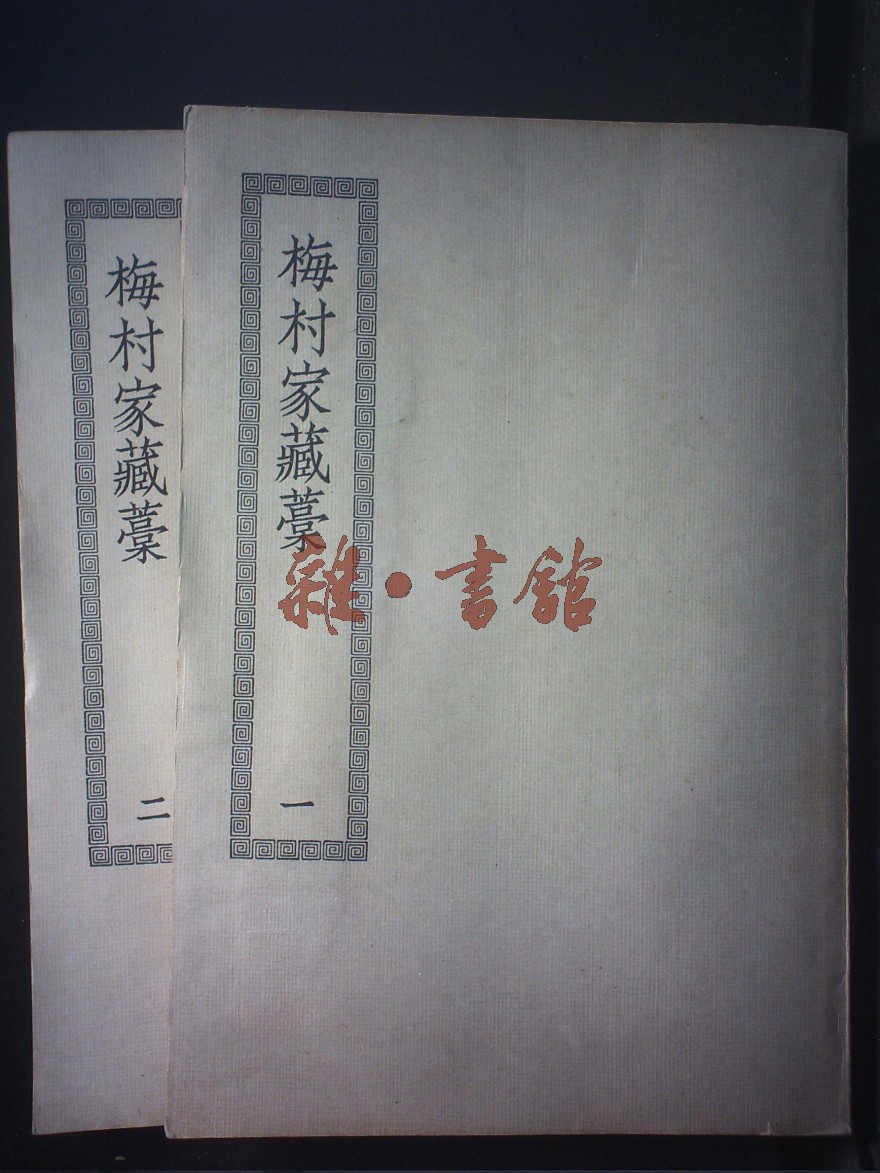 梅村家藏藁
一
梅村家藏藁
二
雜·書館